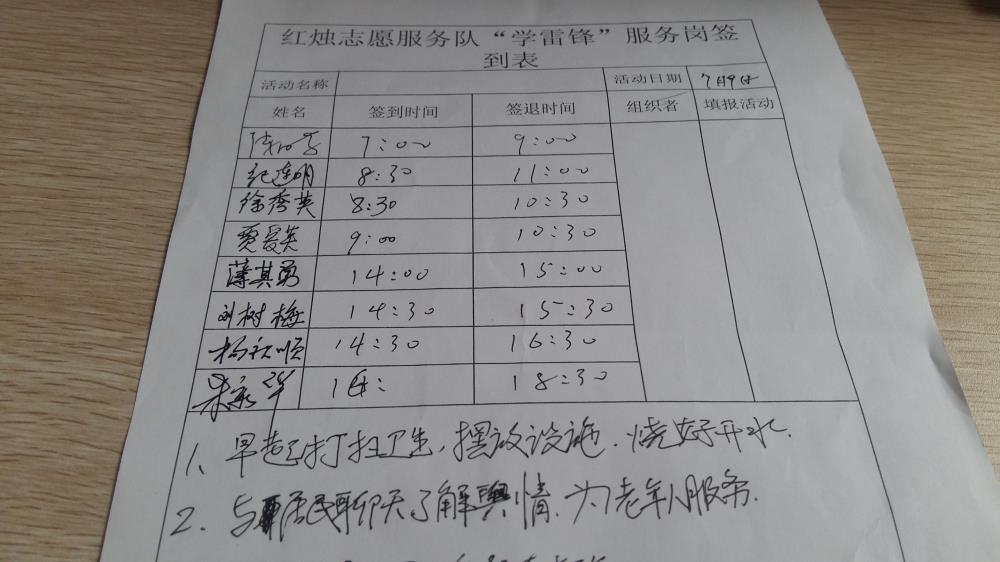 红烛志愿服务队“学雷锋”服务岗签
到表
活动名称 活动日期 7月9日
姓名 签到时间 签退时间 组织者 填报活动
7:00 9:00
纪连明 8:30 11:00
徐秀英 8:30 10:30
贾爱英 9:00 10:30
薄其勇 14:00 15:00
刘树梅 14:30 15:30
杨秋顺 14:30 16:30
16: 18:30
1、早起打扫卫生,摆放设施.烧好开水.
2.与居民聊天了解舆情.为老年人服务.